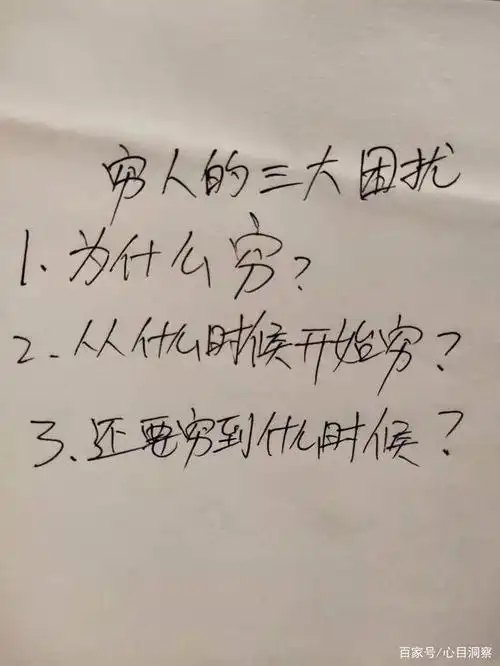 穷人的三大困扰
1.为什么穷?
2.从什么时候开始穷?
3.还要穷到什么时候?
百家号/心目洞察